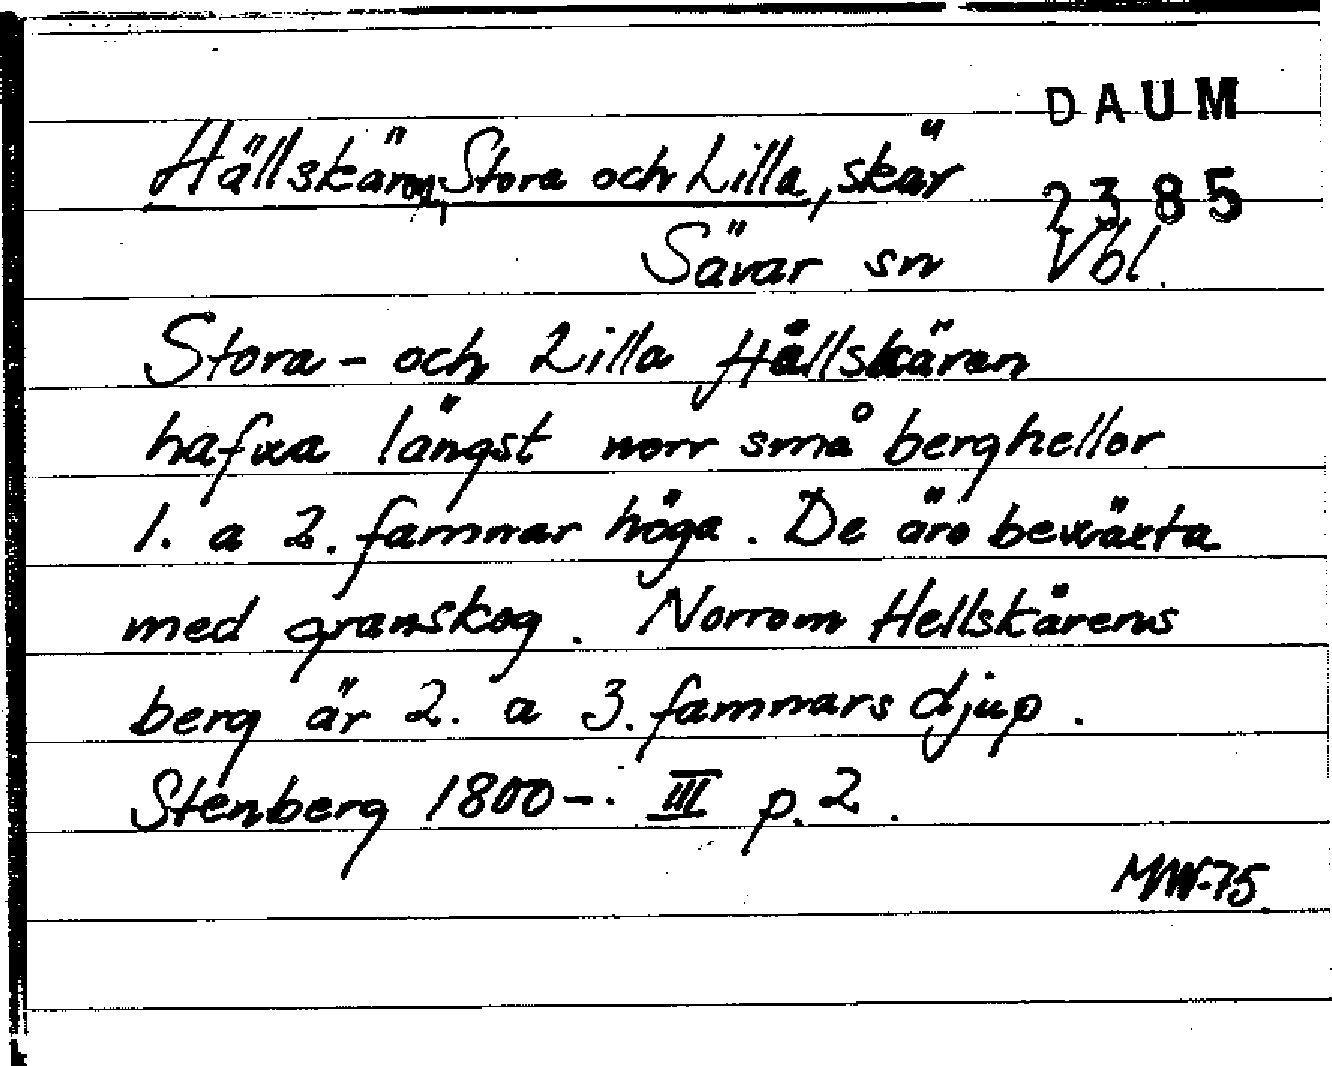 DAUM
Hällskären, Stora och Lilla, skär
2385
Sävar sn Vbl.
Stora - och Lilla Hällskären
hafva längst norr små berghellor
1. a 2. famnar höga. De äro beväxta
med granskog. Norrom Hellskärens
berg är 2. a 3. famnars djup.
Stenberg 1800-. III p. 2.
MW-75.